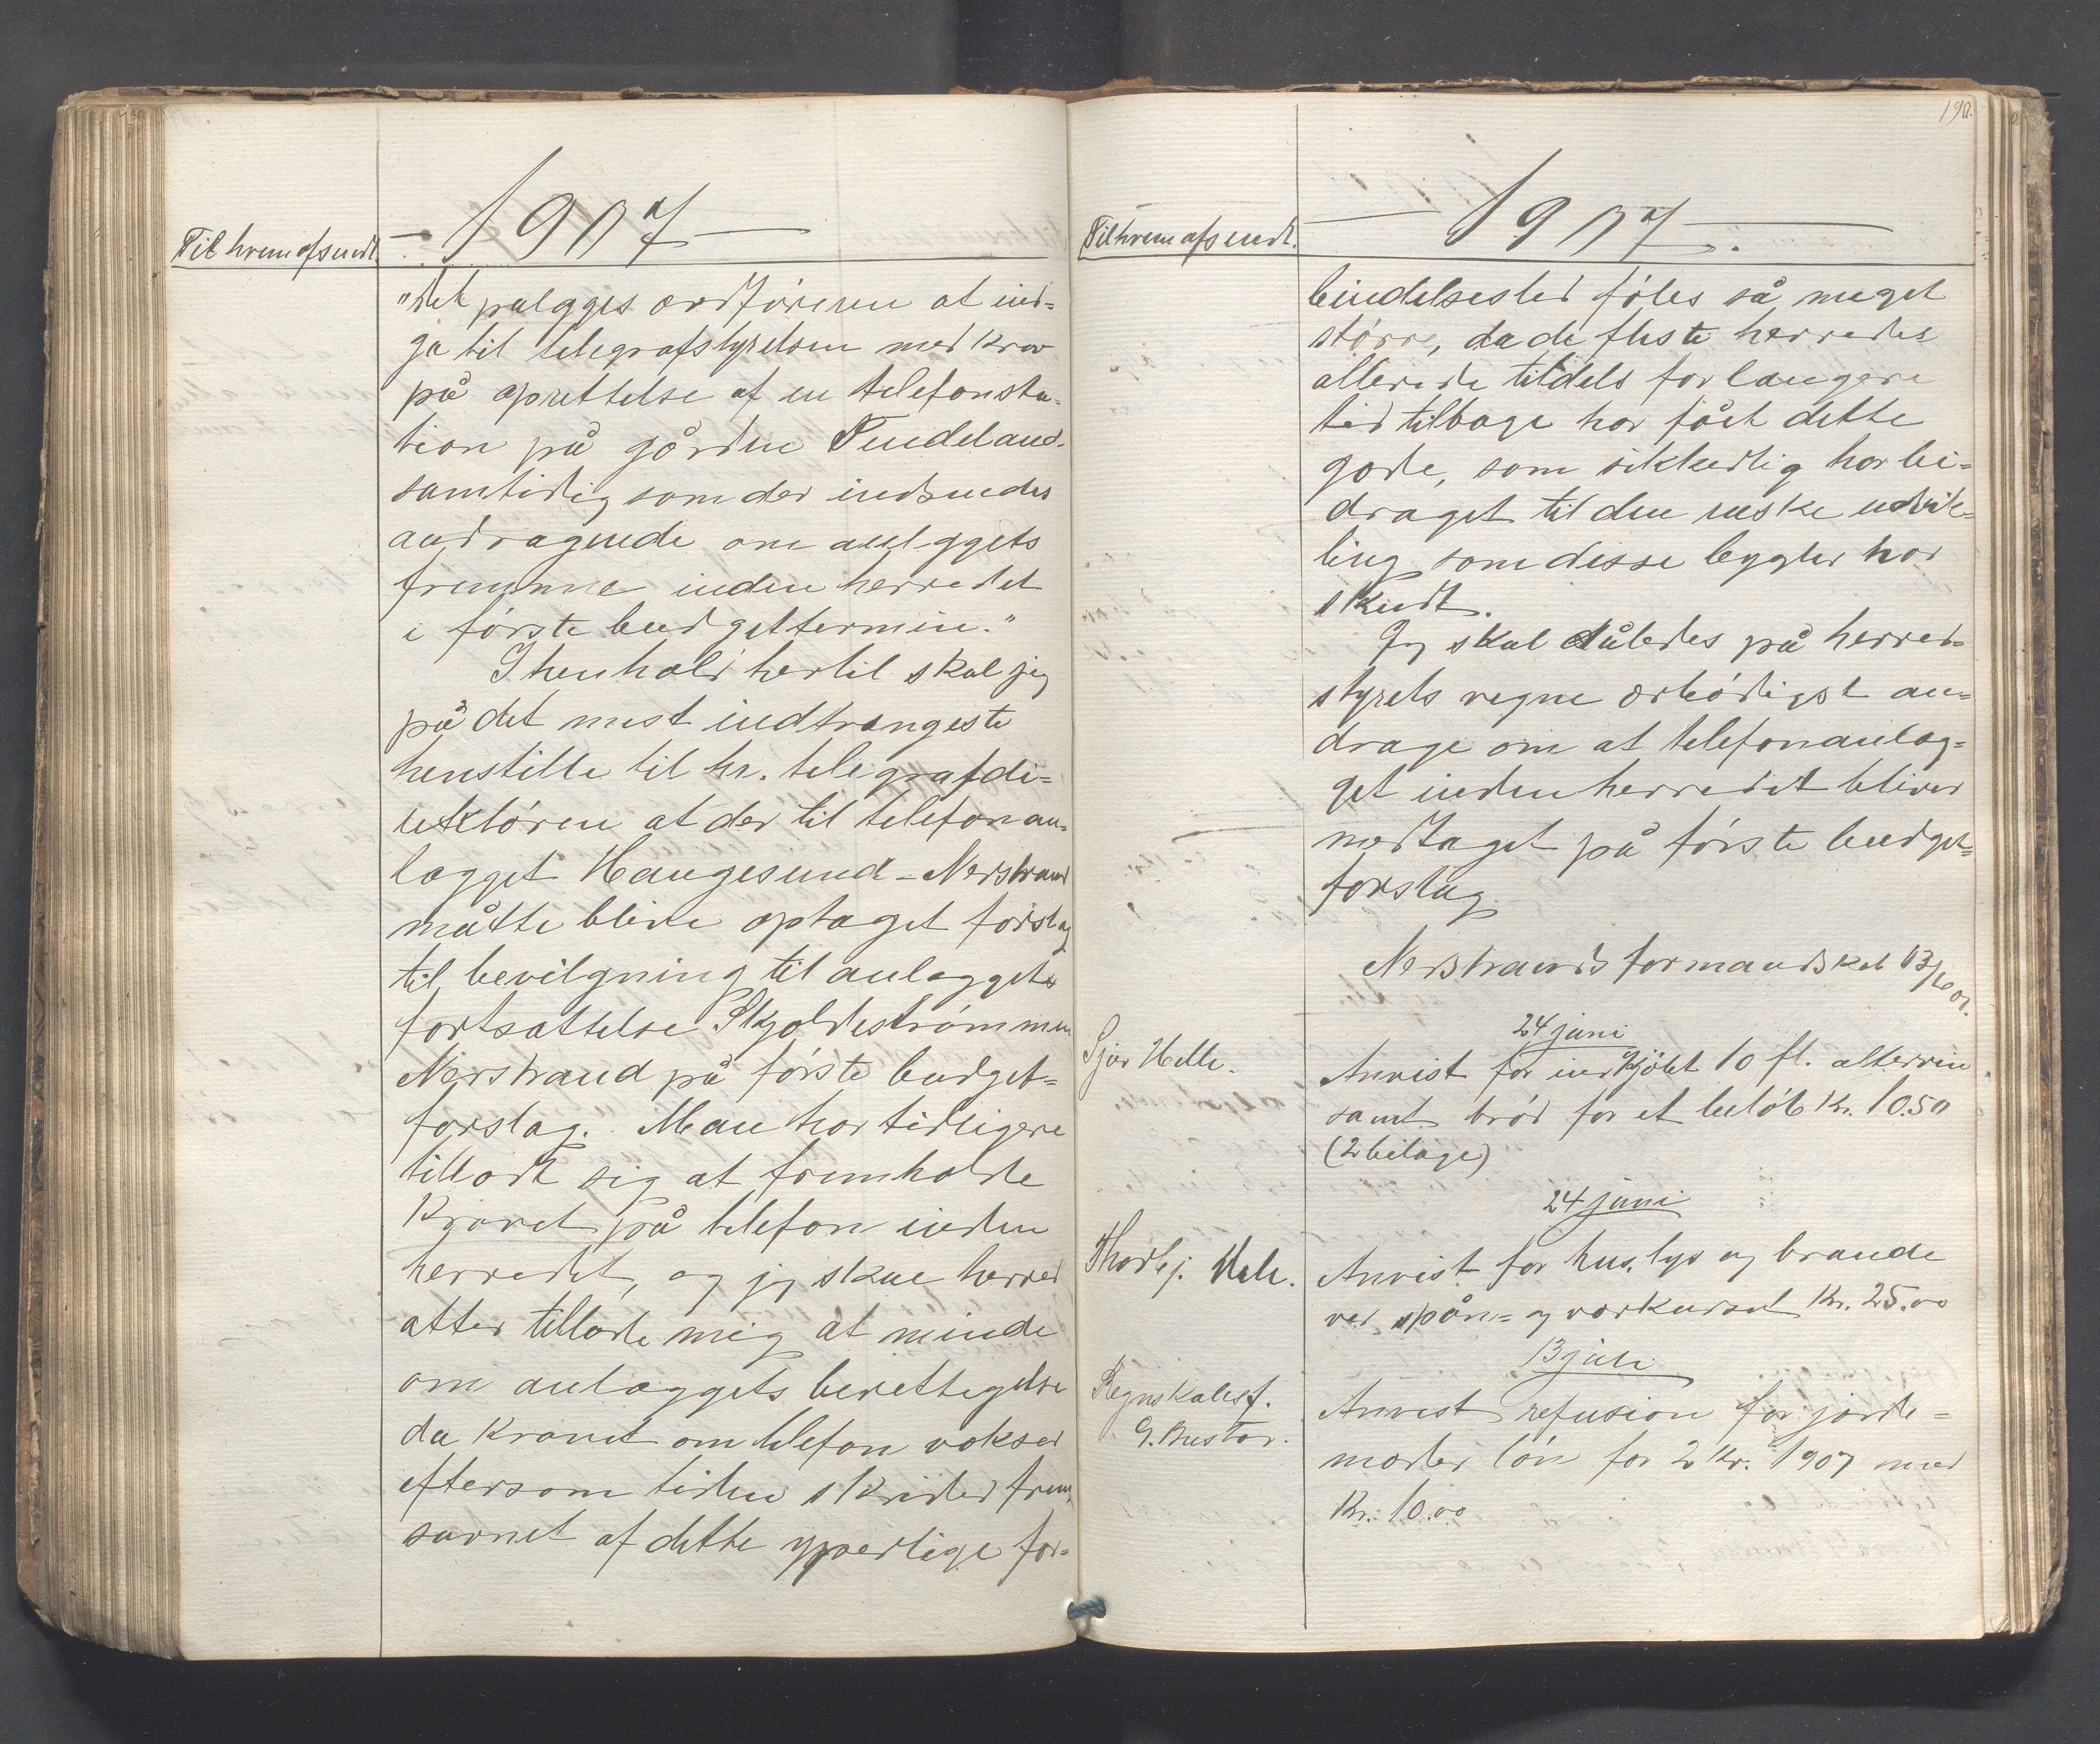 Til hvem afsendt.
1907
"det pålægges ordføreren at ind=
gå til telegrafstyrelsen med krav
på oprettelse af en telefonsta-
tion på gården Tindeland
samtidig som der indsendes
andragende om anlæggets
fremme inden herredet
i første budgettermin."
I henhold hertil skal jeg
på det mest indtrængeste
henstille til hr. telegrafdi=
rektøren at der til telefonan-
lægget Haugesund - Nerstrand
måtte blive optaget forslag
til bevilgning til anlæggets
fortsættelse Skjoldestrømmen
Nerstrand på første budget=
forslag. Man har tidligere
tilladt sig at fremholde
kravet på telefon inden
herredet, og jeg skal herved
atter tillade mig at minde
om anlæggets berettigelse
da kravet om telefon vokser
eftersom tiden skrider frem,
savnet af dette ypperlige for=
190.
Til hvem afsendt.
1907.
bindelsesled føles så meget
større, da de fleste herreder
allerede tildels for længere
tid tilbage har fået dette
gode, som sikkerlig har bi=
draget til den raske udvik=
ling som disse bygder har
skudt.
Jeg skal således på herred=
styrets vegne ærbødigst an=
drage om at telefonanlæg=
get inden herredet bliver
medtaget på første budget=
forslag.
Nerstrands formandskab 13/6 07.
24 juni
Sjur Helle.
Anvist for indkjøbt 10 fl. altervin
samt brød for et beløb Kr. 10.50
(2 bilage)
24 juni
Thorbj. Hele.
Anvist for hus, lys og brænde
ved spån= og vævkurset Kr. 25.00
13 juli
Regnskabsf.
Anvist refusion for jorde=
moder løn for 2 kv. 1907 med
Kr. 10.00